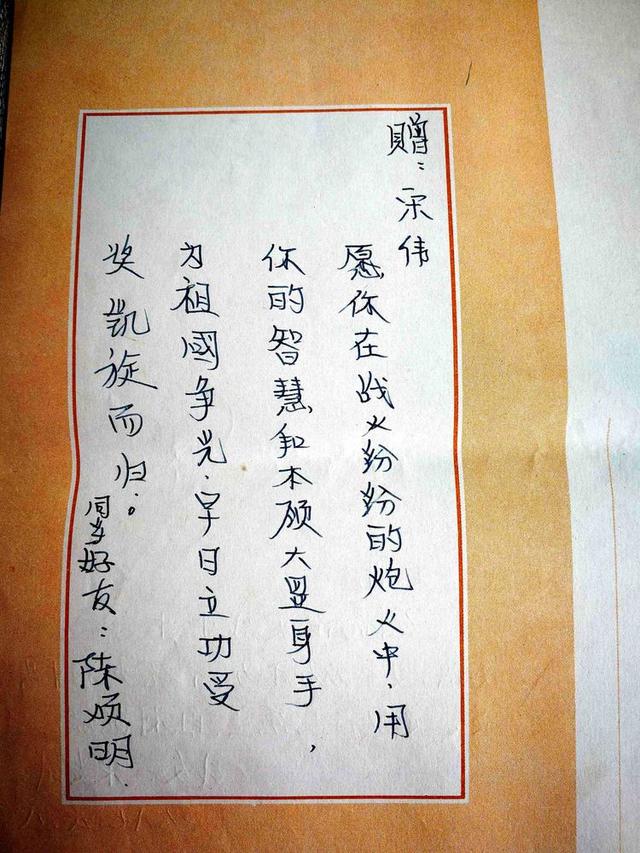 贈：宋伟
愿你在战火纷纷的炮火中、用
你的智慧和本领大显身手，
为祖國争光、早日立功受
奖凯旋而归。
同乡好友：陈明.